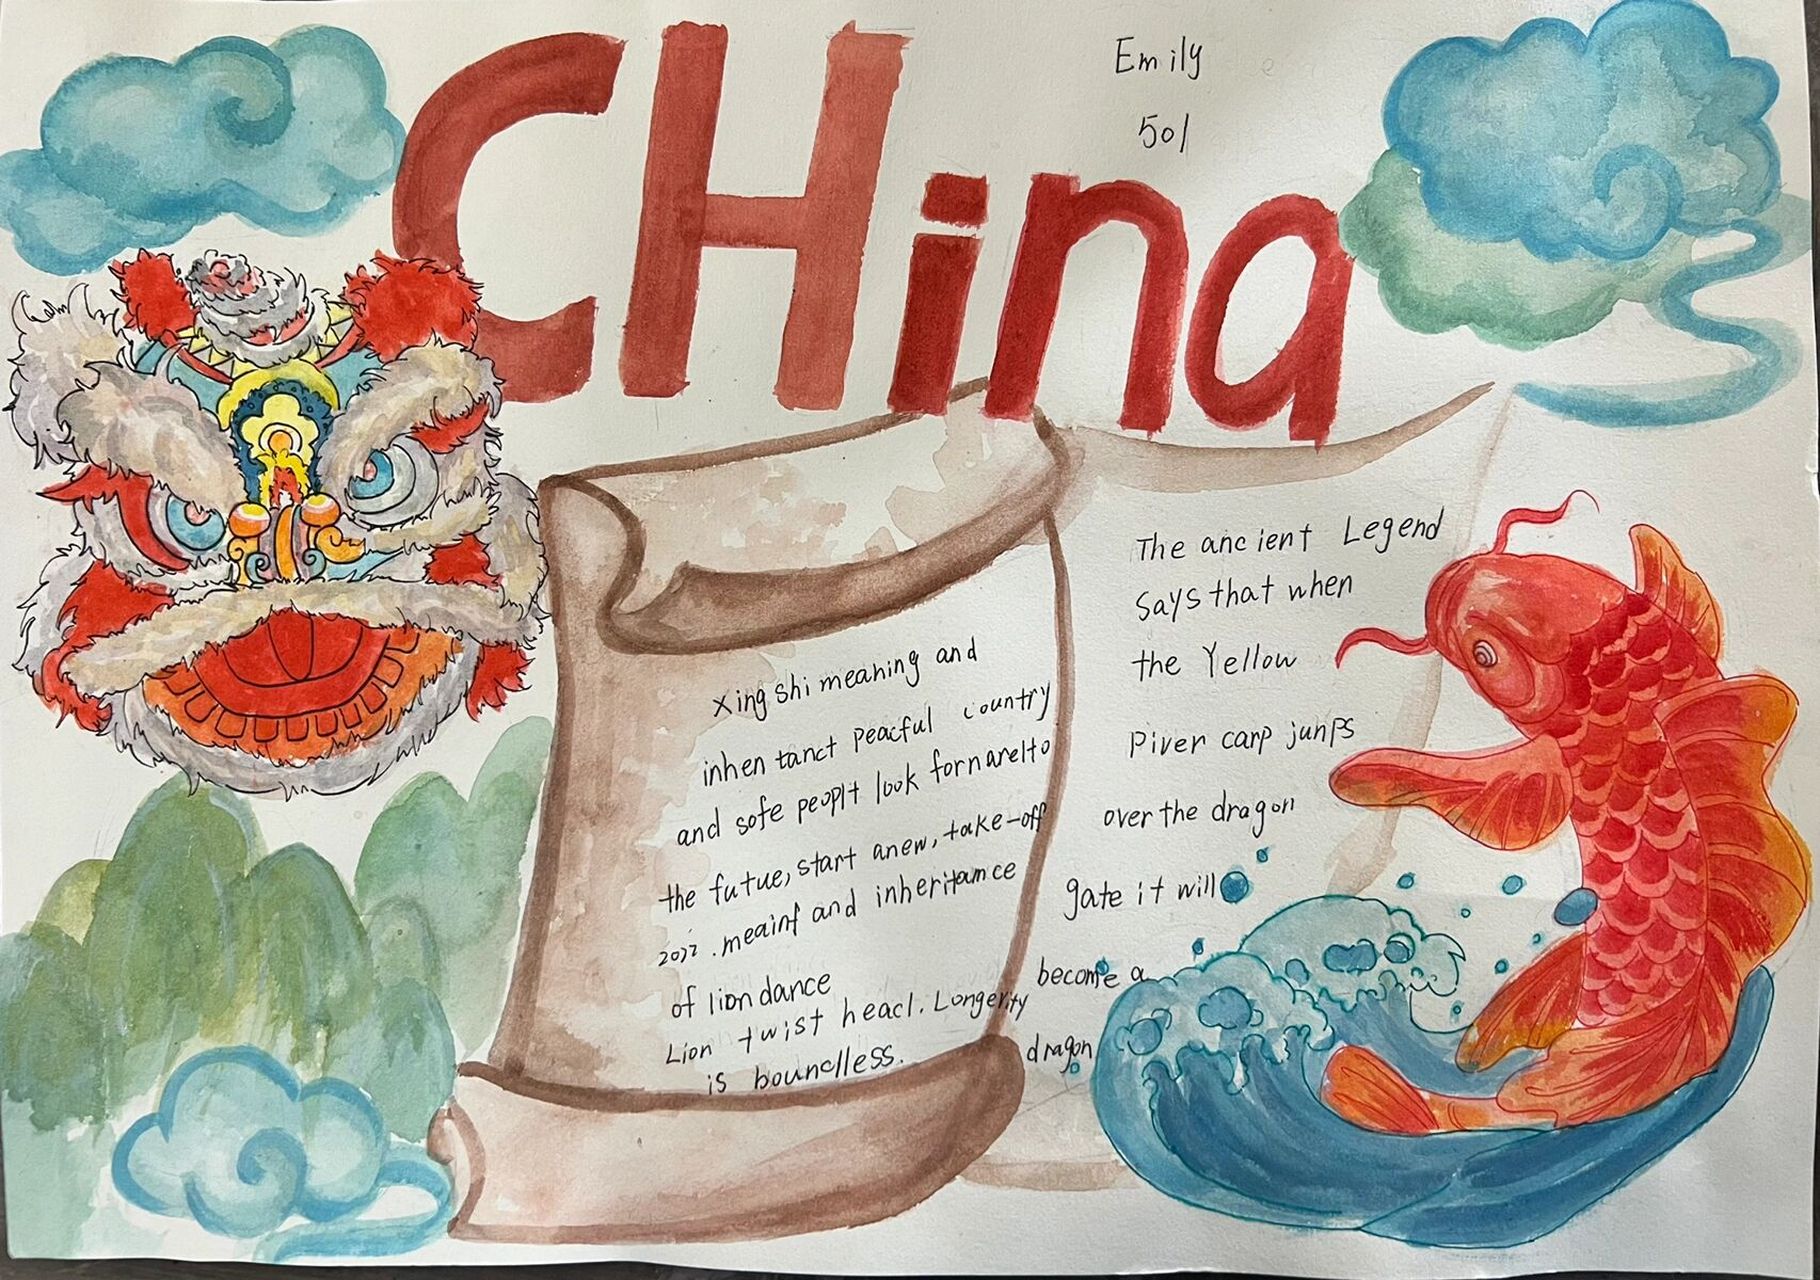 CHina
Emily
501
xing shi meaning and
inhen tanct peacful country
and sofe peoplt look fornarelto
the futue, start anew, take-off
2022 . meainf and inheritamce
of lion dance
Lion twist heacl. Longerity
is bounclless.
The ancient Legend
Says that when
the Yellow
Piver carp junps
over the dragon
gate it will
become a
dragon